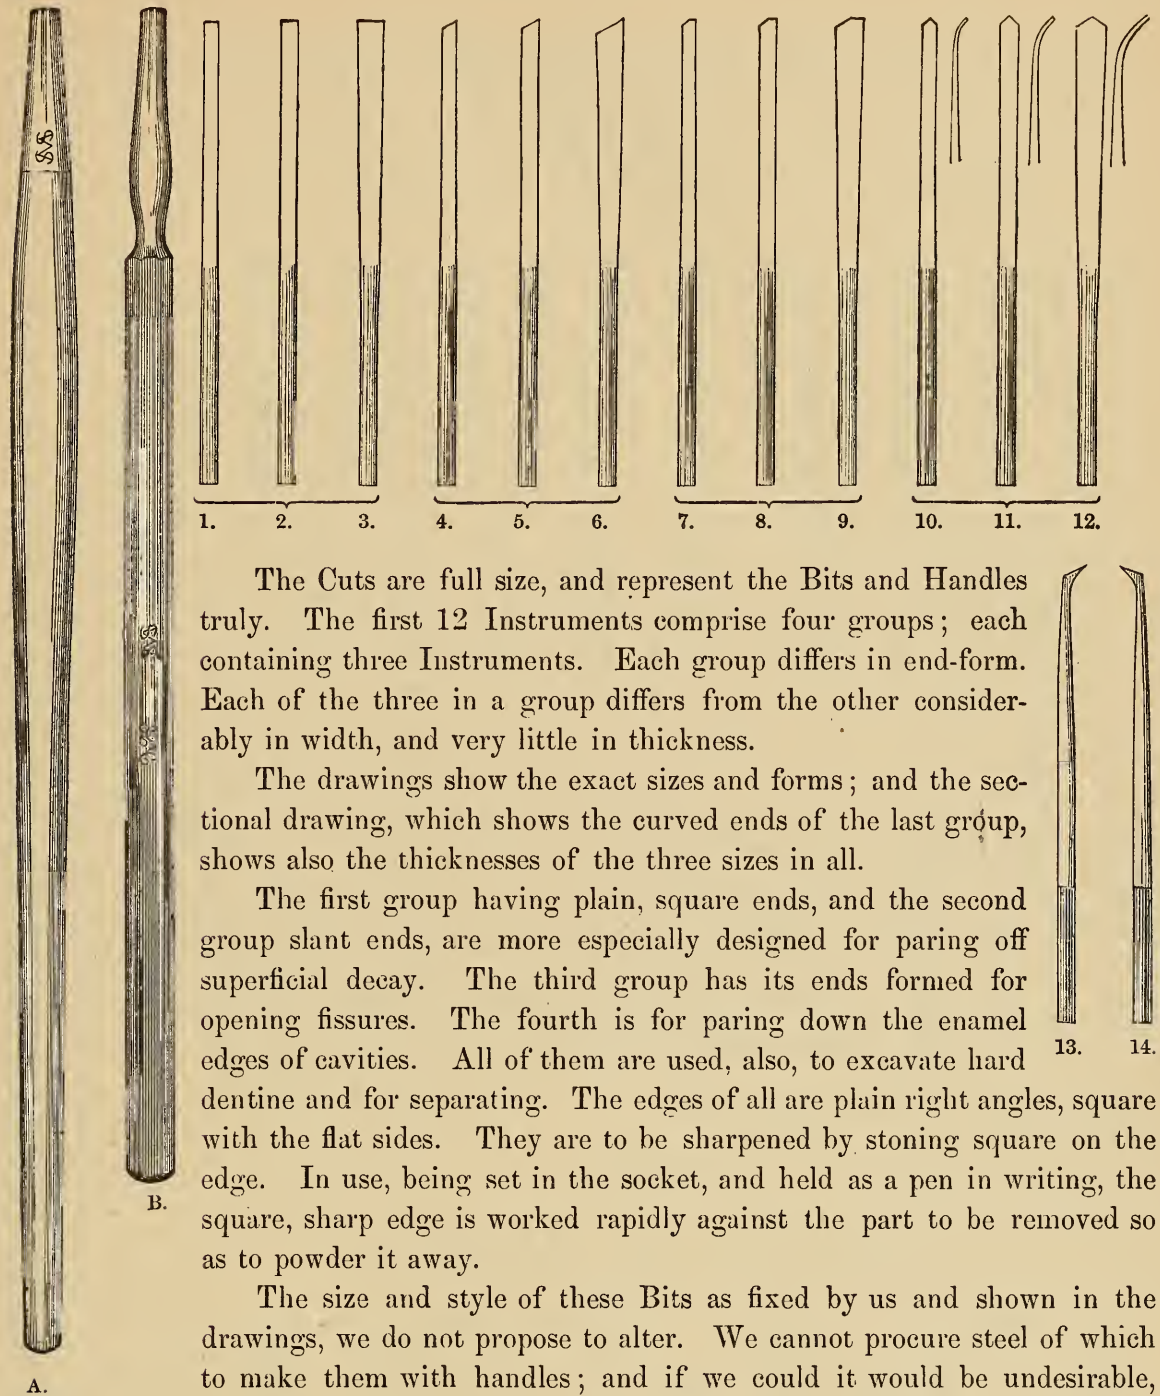 1. 2. 3. 4. 5. 6. 7. 8. 9. 10. 11. 12.
The Cuts are full size, and represent the Bits and Handles
truly. The first 12 Instruments comprise four groups; each
containing three Instruments. Each group differs in end-form.
Each of the three in a group differs from the other consider-
ably in width, and very little in thickness.
The drawings show the exact sizes and forms; and the sec-
tional drawing, which shows the curved ends of the last group,
shows also the thicknesses of the three sizes in all.
The first group having plain, square ends, and the second
group slant ends, are more especially designed for paring off
superficial decay. The third group has its ends formed for
opening fissures. The fourth is for paring down the enamel
edges of cavities. All of them are used, also, to excavate hard
13. 14.
dentine and for separating. The edges of all are plain right angles, square
with the flat sides. They are to be sharpened by stoning square on the
edge. In use, being set in the socket, and held as a pen in writing, the
B.
square, sharp edge is worked rapidly against the part to be removed so
as to powder it away.
The size and style of these Bits as fixed by us and shown in the
drawings, we do not propose to alter. We cannot procure steel of which
to make them with handles; and if we could it would be undesirable,
A.